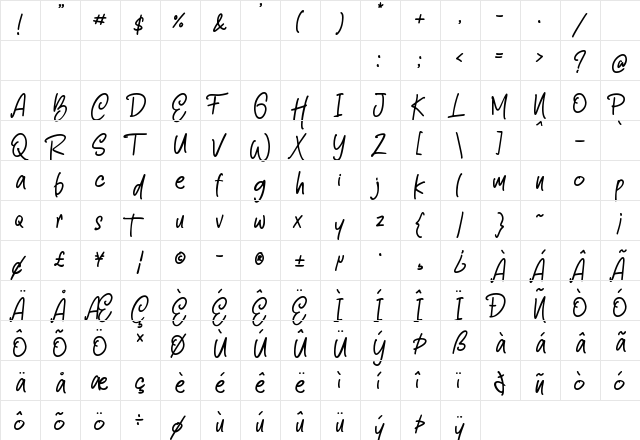 ! " # $ % & ' ( ) * + , - . /
: ; < = > ? @
A B C D E F G H I J K L M N O P
Q R S T U V W X Y Z [ \ ] ^ _ `
a b c d e f g h i j k l m n o p
q r s t u v w x y z { | } ~ ¡
¢ £ ¥ ¦ © - ® ± µ · ¸ ¿ À Á Â Ã
Ä Å Æ Ç È É Ê Ë Ì Í Î Ï Ð Ñ Ò Ó
Ô Õ Ö × Ø Ù Ú Û Ü Ý Þ ß à á â ã
ä å æ ç è é ê ë ì í î ï ð ñ ò ó
ô õ ö ÷ ø ù ú û ü ý þ ÿ